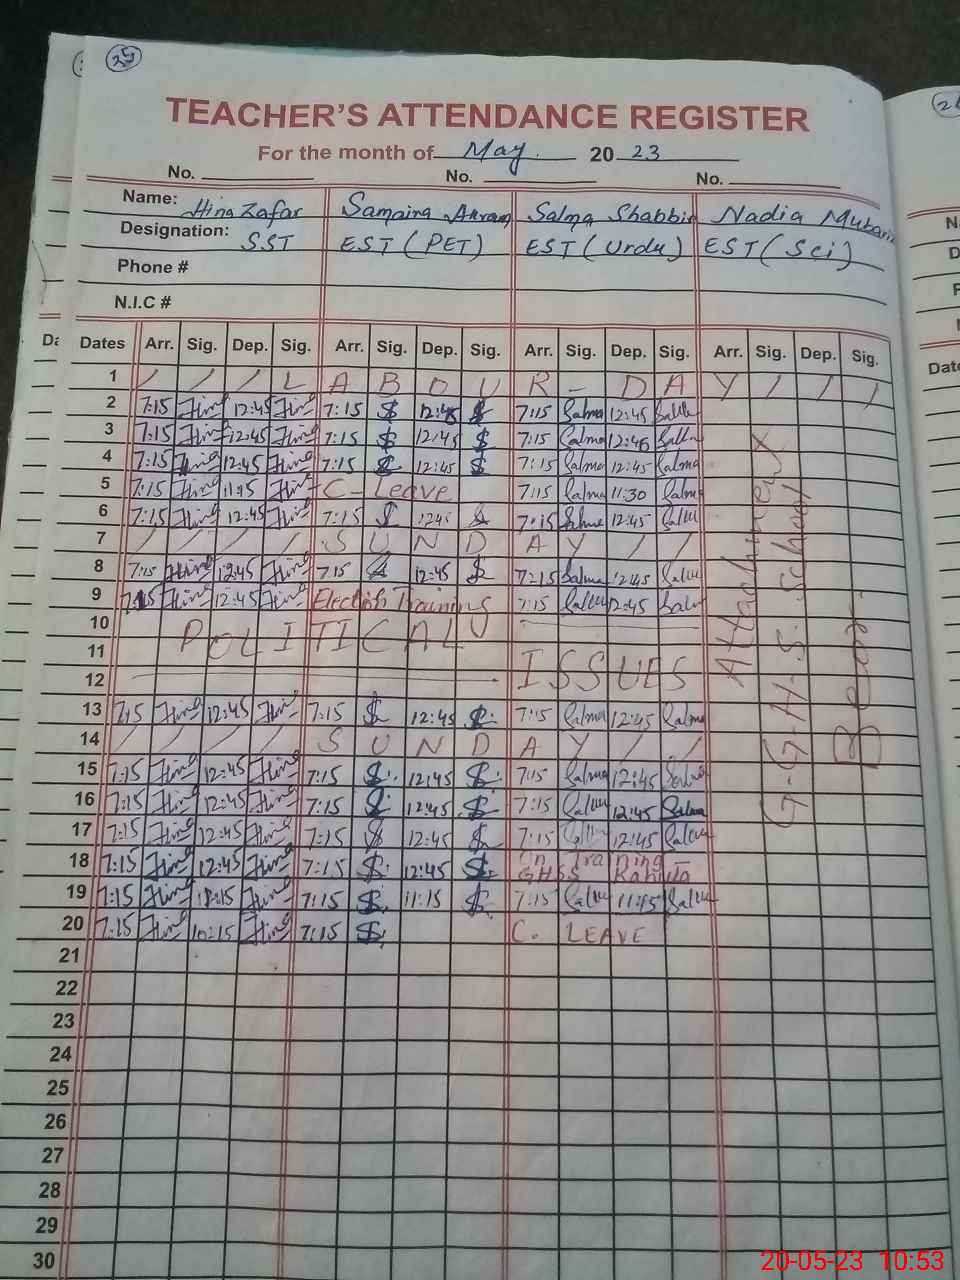 25
TEACHER'S ATTENDANCE REGISTER
For the month of May. 20 23
No. No. No.
Name: Hina Zafar Samaira Akram Salma Shabbir Nadia Mubarik
Designation: SST EST (PET) EST (Urdu) EST (Sci)
Phone #
N.I.C #
Dates Arr. Sig. Dep. Sig. Arr. Sig. Dep. Sig. Arr. Sig. Dep. Sig. Arr. Sig. Dep. Sig.
1 / / / L A B O U R - D A Y / / /
2 7:15 Hina 12:45 Hina 7:15 $ 12:45 $ 7:15 Salma 12:45 Salma
3 7:15 Hina 12:45 Hina 7:15 $ 12:45 $ 7:15 Salma 12:45 Salma
4 7:15 Hina 12:45 Hina 7:15 $ 12:45 $ 7:15 Salma 12:45 Salma
5 7:15 Hina 11:15 Hina C- Leave 7:15 Salma 11:30 Salma
6 7:15 Hina 12:45 Hina 7:15 $ 12:45 $ 7:15 Salma 12:45 Salma
7 / / / / S U N D A Y / /
8 7:15 Hina 12:45 Hina 7:15 $ 12:45 $ 7:15 Salma 12:45 Salma
9 7:15 Hina 12:45 Hina Election Training 7:15 Salma 12:45 Salma
10 POLITICALLY
11 ISSUES
12
13 7:15 Hina 12:45 Hina 7:15 $ 12:45 $ 7:15 Salma 12:45 Salma
14 / / / / S U N D A Y / /
15 7:15 Hina 12:45 Hina 7:15 $ 12:45 $ 7:15 Salma 12:45 Salma
16 7:15 Hina 12:45 Hina 7:15 $ 12:45 $ 7:15 Salma 12:45 Salma
17 7:15 Hina 12:45 Hina 7:15 $ 12:45 $ 7:15 Salma 12:45 Salma
18 7:15 Hina 12:45 Hina 7:15 $ 12:45 $ On Training - GHSS
19 7:15 Hina 7:15 $ 11:15 $ 7:15 Salma 11:45 Salma
20 7:15 Hina 10:15 Hina 7:15 $ C. LEAVE
21
22
23
24
25
26
27
28
29
30
Attachment
G.G.H.S. School
20-05-23 10:53